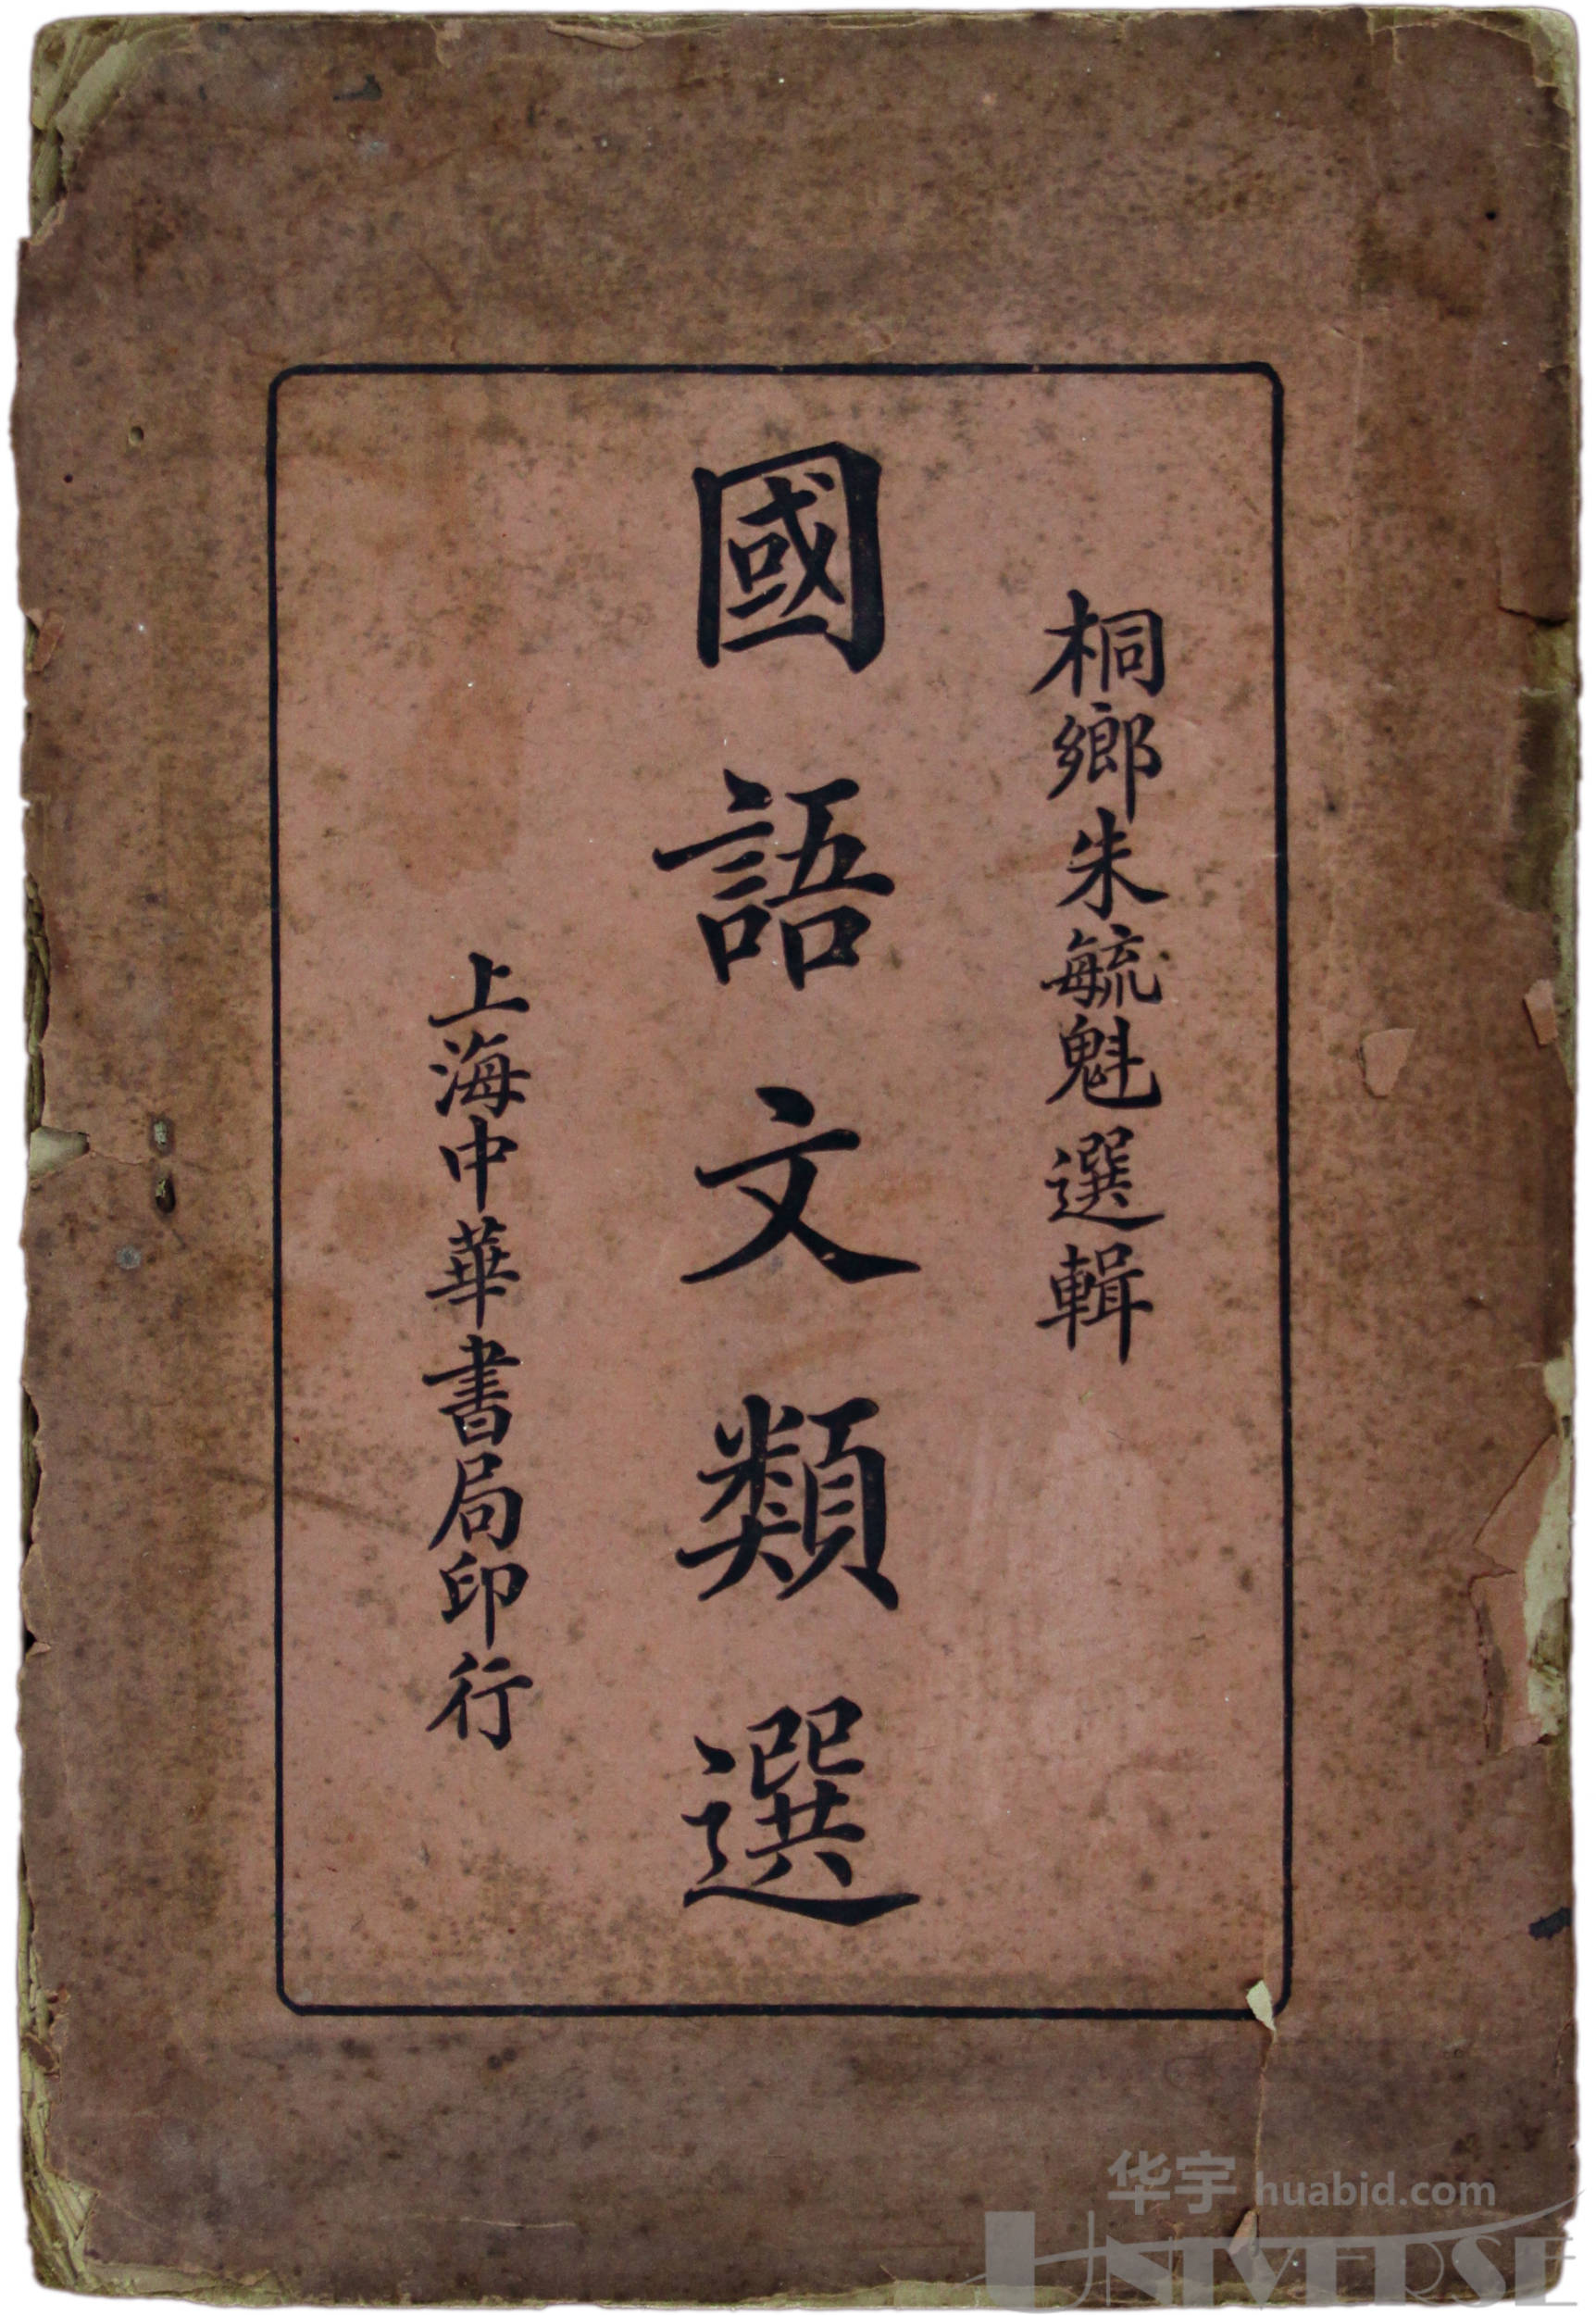 桐鄉朱毓魁選輯
國語文類選
上海中華書局印行
华宇 huabid.com
UNIVERSE